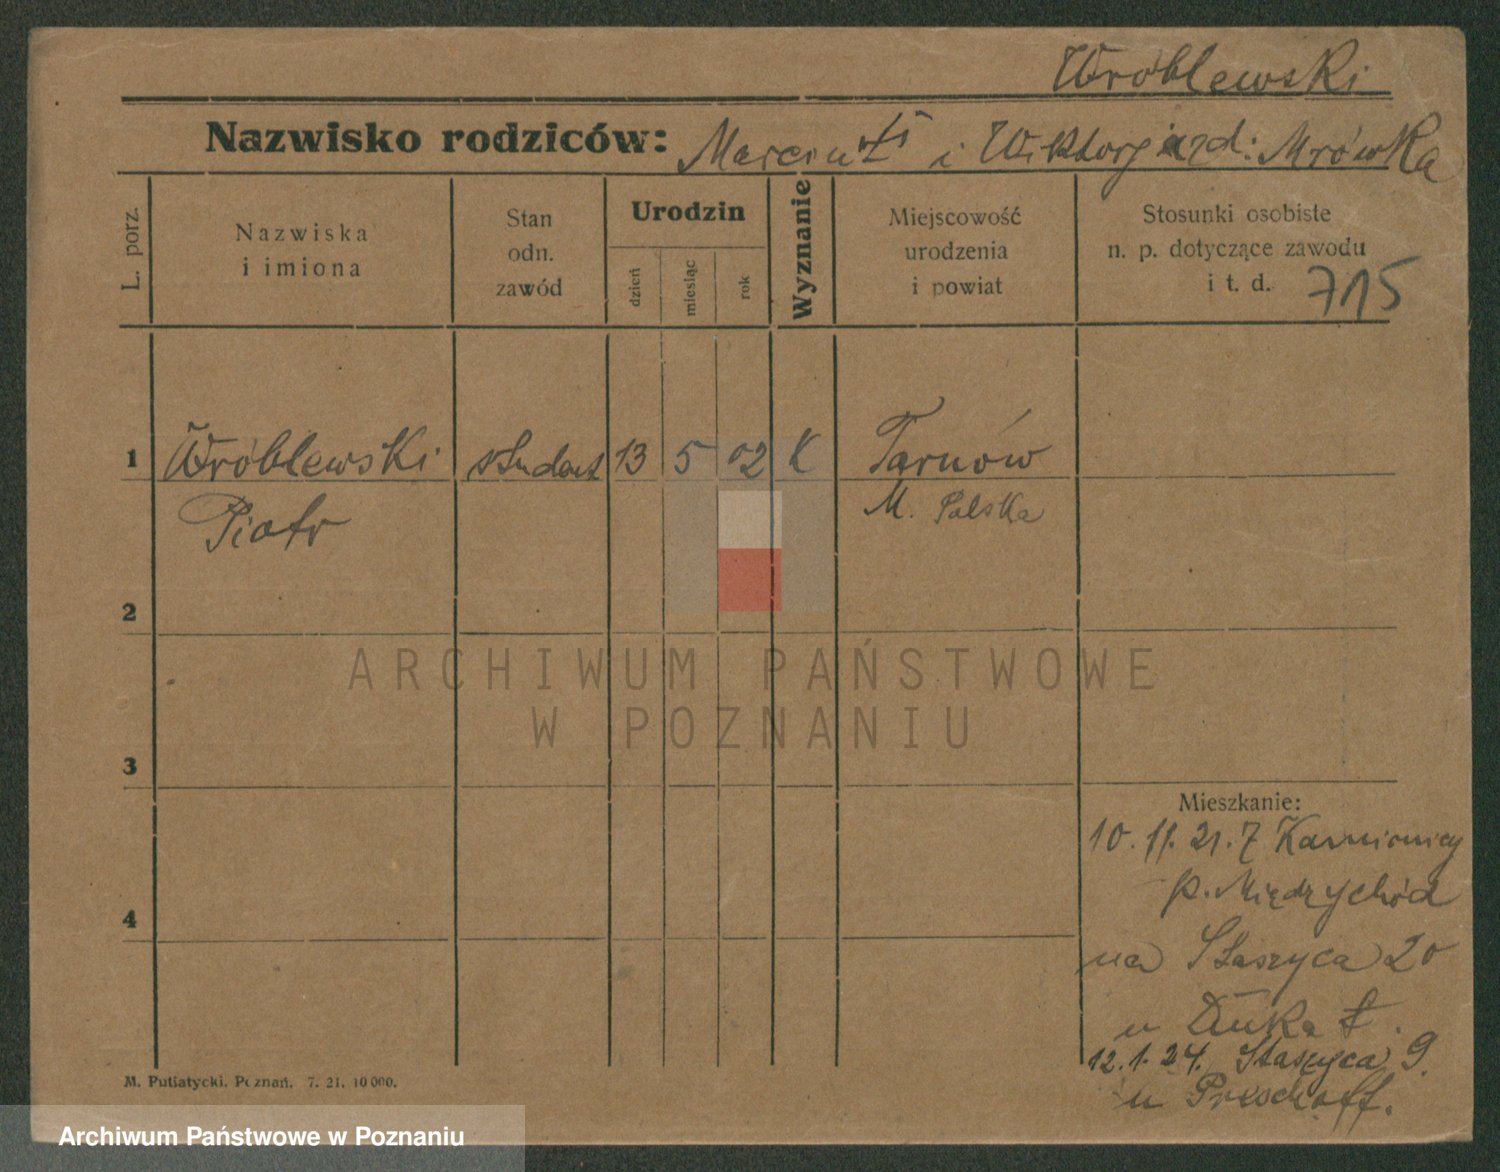 Wróblewski
Nazwisko rodziców: Marcin i Wiktorja zd: Mrówka
L. porz.
Nazwiska
i imiona
Stan
odn.
zawód
Urodzin
dzień
miesiąc
rok
Wyznanie
Miejscowość
urodzenia
i powiat
Stosunki osobiste
n. p. dotyczące zawodu
i t. d.
715
1 Wróblewski student 13 5 02 K Tarnów
Piotr M. Polska
2
ARCHIWUM PAŃSTWOWE
W POZNANIU
3
Mieszkanie:
10. 11. 21. z Kamionnej
p. Międzychód
4
na Staszyca 20
u
12.1.24. Staszyca 9.
u Preschoff.
M. Putiatycki. Poznań. 7. 21. 10000.
Archiwum Państwowe w Poznaniu